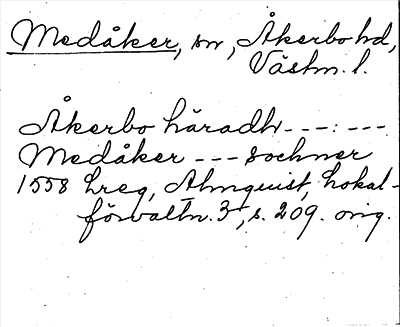 Medåker, sn, Åkerbo hd,
Västm. l.
Åkerbo häradh - - - : - - -
Medåker - - - sochner
1558 Lreg, Almquist, Lokal-
förvaltn. 3, s. 209. orig.